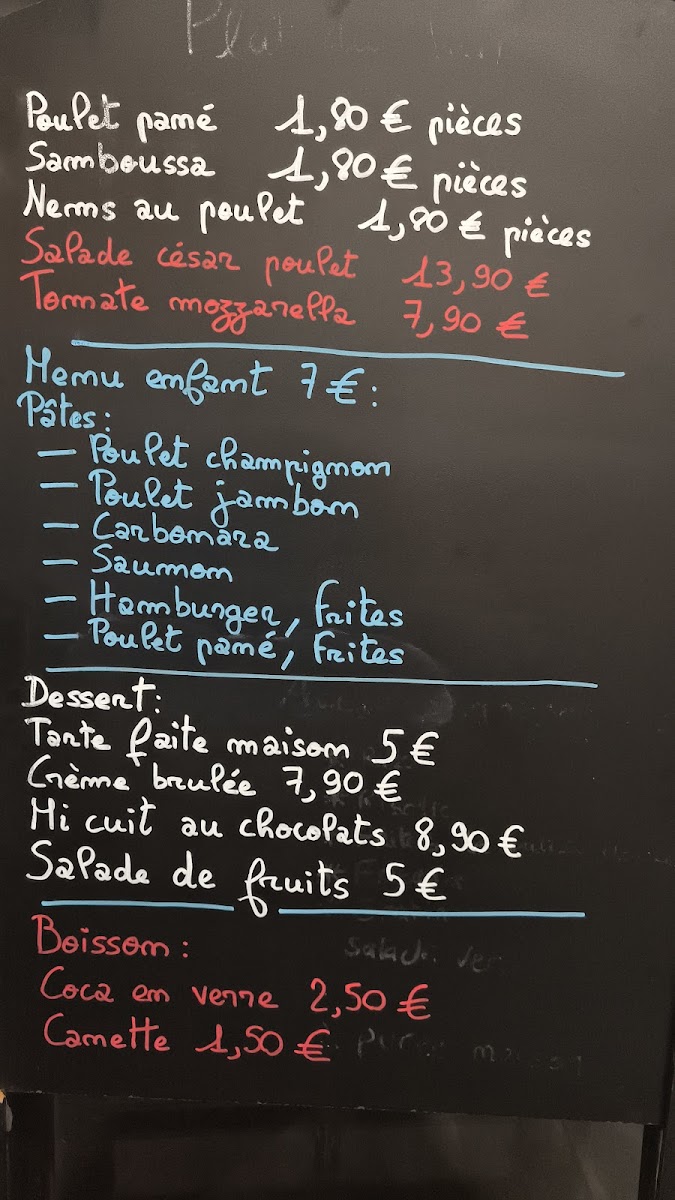 Plat du jour
Poulet pané 1,80 € pièces
Samboussa 1,80 € pièces
Nems au poulet 1,80 € pièces
Salade césar poulet 13,90 €
Tomate mozzarella 7,90 €
Menu enfant 7 € :
Pâtes :
— Poulet champignon
— Poulet jambon
— Carbonara
— Saumon
— Hamburger, frites
— Poulet pané, frites
Dessert :
Tarte faite maison 5 €
Crème brulée 7,90 €
Mi cuit au chocolats 8,90 €
Salade de fruits 5 €
Boisson :
Coca en verre 2,50 €
Canette 1,50 €